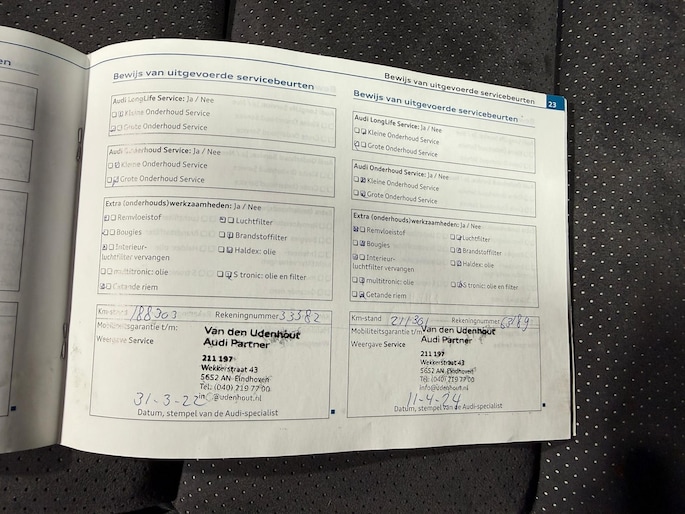 en
Bewijs van uitgevoerde servicebeurten
Audi LongLife Service: Ja / Nee
Kleine Onderhoud Service
Grote Onderhoud Service
Audi Onderhoud Service: Ja / Nee
Kleine Onderhoud Service
Grote Onderhoud Service
Extra (onderhouds)werkzaamheden: Ja / Nee
Remvloeistof Luchtfilter
Bougies Brandstoffilter
Interieur- Haldex: olie
luchtfilter vervangen
multitronic: olie S tronic: olie en filter
Getande riem
Km-stand 188303 Rekeningnummer 33582
Mobiliteitsgarantie t/m:
Weergave Service
Van den Udenhout
Audi Partner
211 197
Wekkerstraat 43
5652 AN Eindhoven
Tel: (040) 219 77 00
info@udenhout.nl
31-3-22
Datum, stempel van de Audi-specialist
Bewijs van uitgevoerde servicebeurten
23
Bewijs van uitgevoerde servicebeurten
Audi LongLife Service: Ja / Nee
Kleine Onderhoud Service
Grote Onderhoud Service
Audi Onderhoud Service: Ja / Nee
Kleine Onderhoud Service
Grote Onderhoud Service
Extra (onderhouds)werkzaamheden: Ja / Nee
Remvloeistof Luchtfilter
Bougies Brandstoffilter
Interieur- Haldex: olie
luchtfilter vervangen
multitronic: olie S tronic: olie en filter
Getande riem
Km-stand 211301 Rekeningnummer 63189
Mobiliteitsgarantie t/m:
Weergave Service
Van den Udenhout
Audi Partner
211 197
Wekkerstraat 43
5652 AN Eindhoven
Tel: (040) 219 77 00
info@udenhout.nl
11-4-24
Datum, stempel van de Audi-specialist